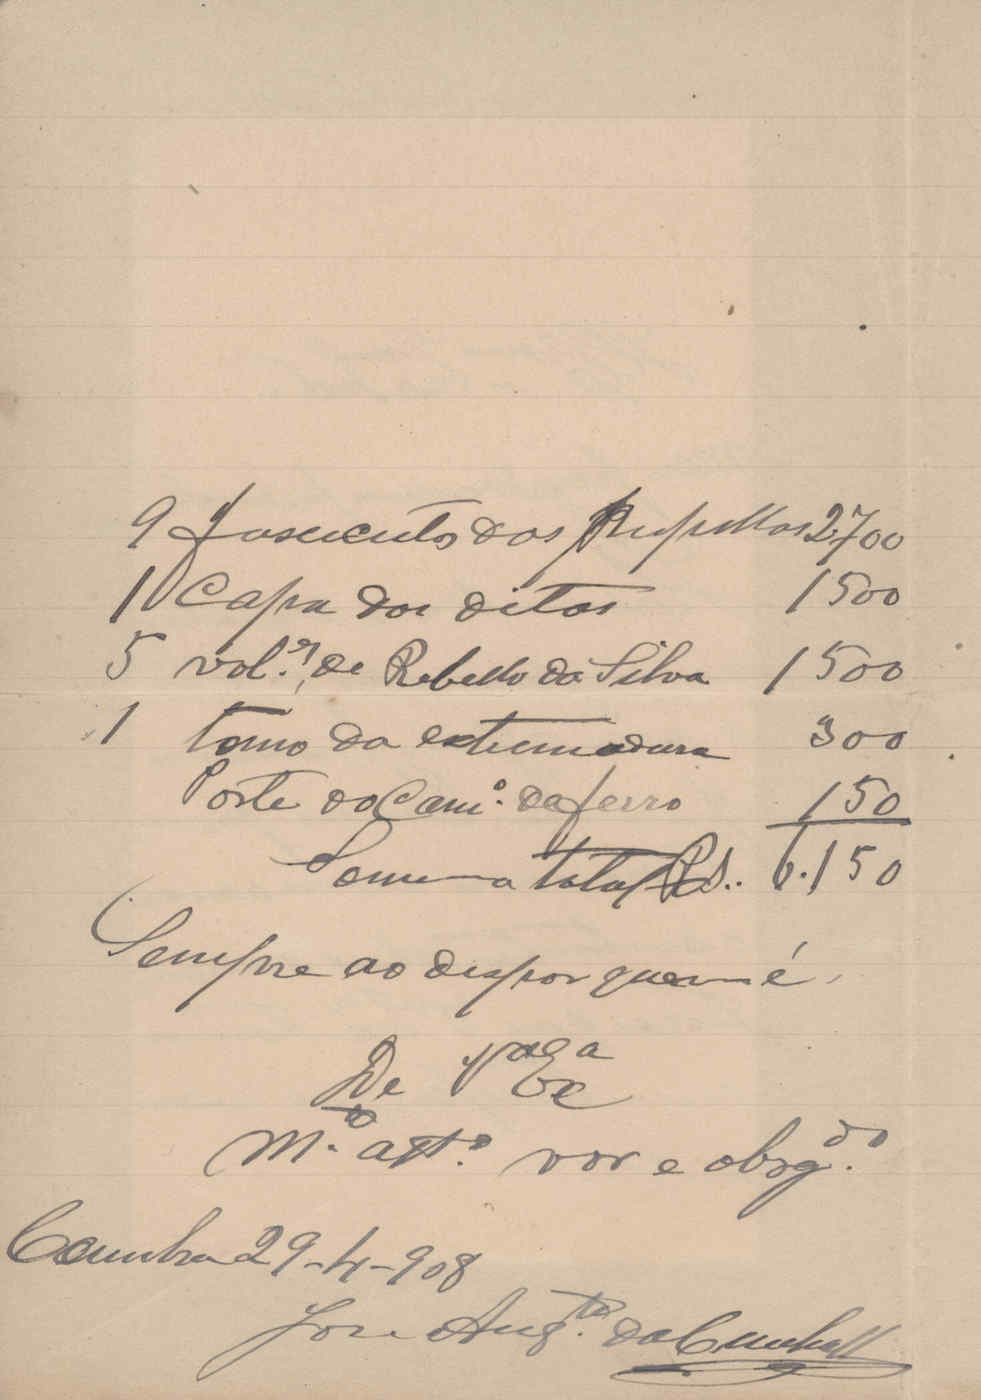 9 dos 2700
1 Capa dos ditos 1500
5 vol.es de Rebello da Silva 1500
1 tomo da extremadura 300
Porte do Cam.o de ferro 150
Somma total Rs.. 6.150
Sempre ao dispor quem é,
De V Ex.a
M.to att.o vor e obrg.do
Coimbra 29-4-908
Jose Aug.to da Cunha